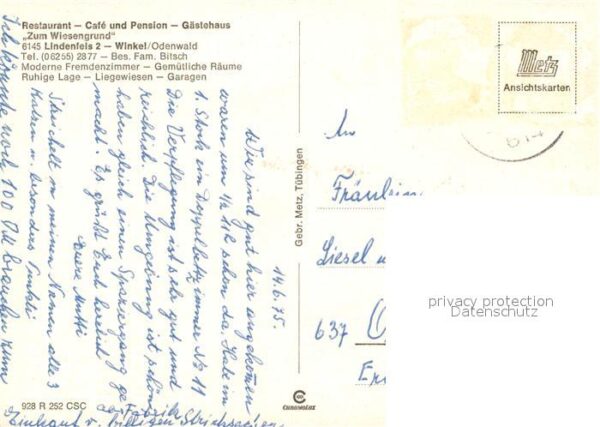 Restaurant — Café und Pension — Gästehaus
„Zum Wiesengrund"
6145 Lindenfels 2 — Winkel/Odenwald
Tel. (06255) 2877 — Bes. Fam. Bitsch
Moderne Fremdenzimmer — Gemütliche Räume
Ruhige Lage — Liegewiesen — Garagen
Metz
Ansichtskarten
614
Gebr. Metz, Tübingen
14.6.75.
Wir sind gut hier angekommen
waren um ½ 11R schon da. Habe im
1. Stock ein Doppelbettzimmer No 11
Die Verpflegung ist sehr gut und
reichlich. Die Umgebung ist schön
haben gleich einen Spaziergang ge
macht. Es grüßt Euch herzlich
Eure Mutti
Streichelt in meinen Namen alle 3
Katzen u. besonders
Ich könnte noch 100 DM brauchen zum
Einkauf v. billigen Strichsachen
An
Fräulein
Liesel u
637
privacy protection
Datenschutz
928 R 252 CSC
CHROMOLUX